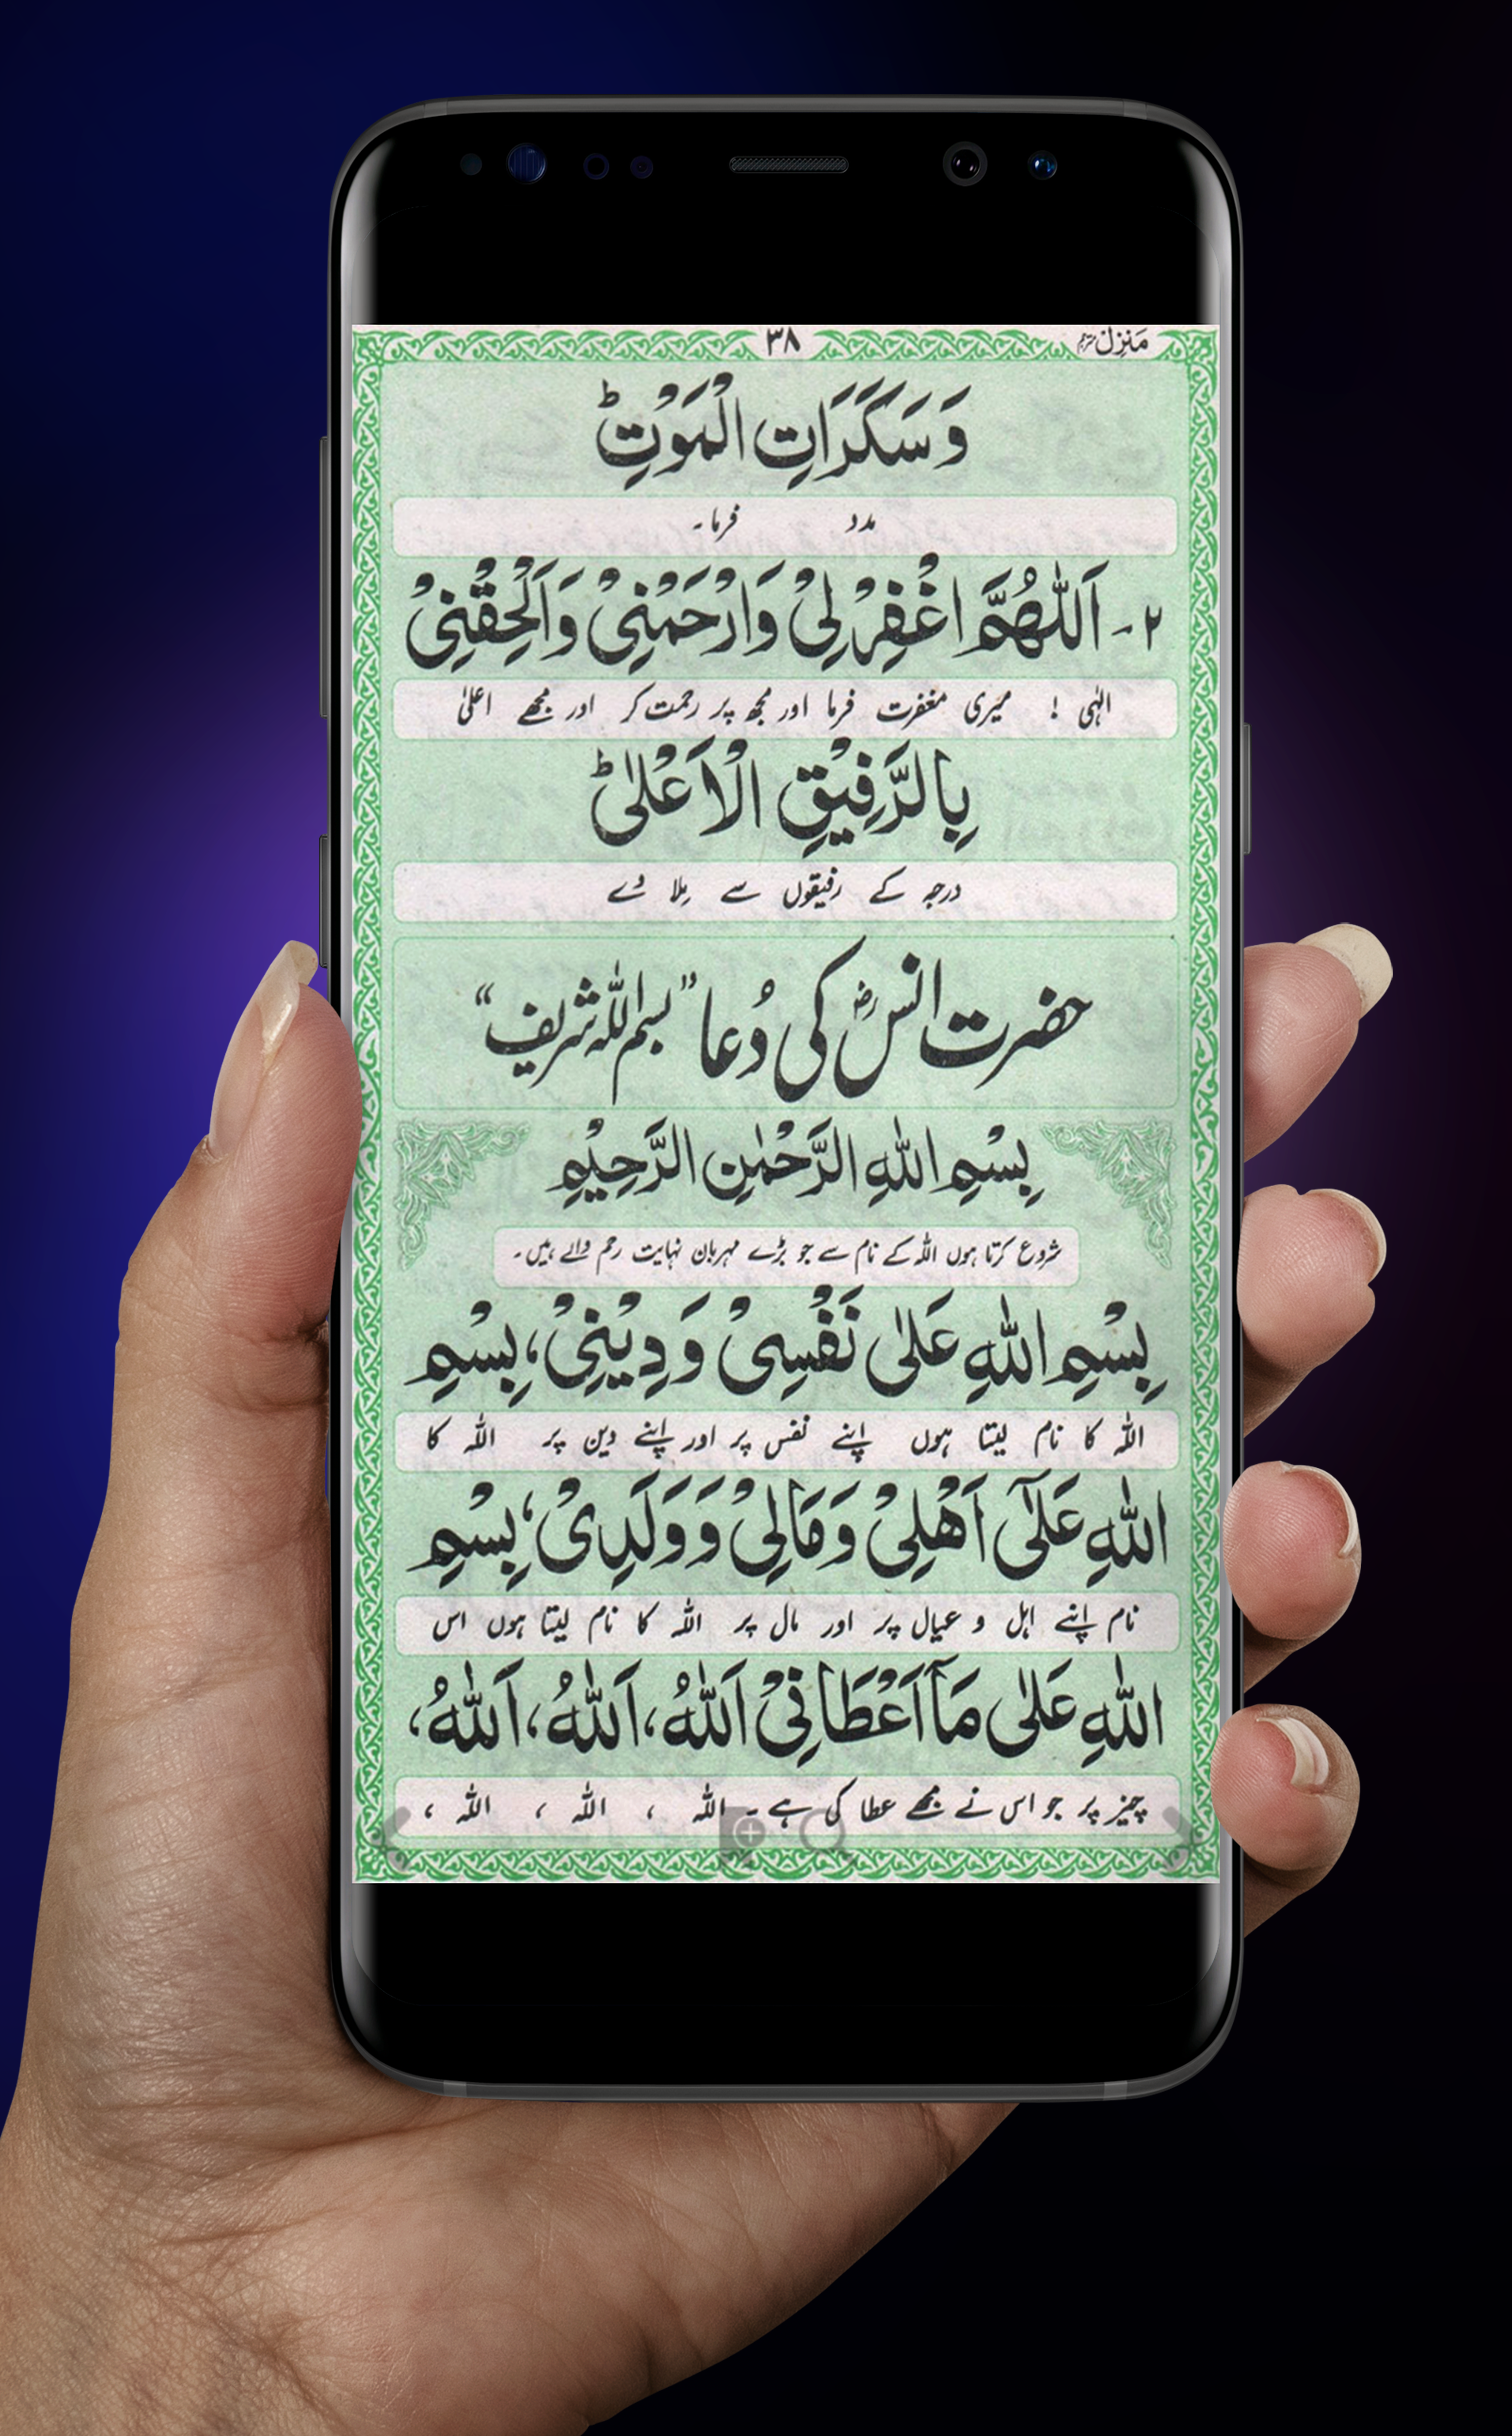 منزل مترجم ۳۸
وَسَكَرَاتِ الْمَوْتِ ؕ
مدد فرما۔
۲۔ اَللّٰهُمَّ اغْفِرْ لِيْ وَارْحَمْنِيْ وَاَلْحِقْنِيْ
الٰہی ! میری مغفرت فرما اور مجھ پر رحمت کر اور مجھے اعلیٰ
بِالرَّفِيْقِ الْاَعْلٰى ؕ
درجہ کے رفیقوں سے مِلا دے
حضرت انسؓ کی دُعا ”بسم اللہ شریف“
بِسْمِ اللهِ الرَّحْمٰنِ الرَّحِيْمِ
شروع کرتا ہوں اللہ کے نام سے جو بڑے مہربان نہایت رحم والے ہیں۔
بِسْمِ اللهِ عَلٰى نَفْسِىْ وَدِيْنِىْ، بِسْمِ
اللہ کا نام لیتا ہوں اپنے نفس پر اور اپنے دین پر اللہ کا
اللهِ عَلٰٓى اَهْلِىْ وَمَالِىْ وَوَلَدِىْ، بِسْمِ
نام اپنے اہل و عیال پر اور مال پر اللہ کا نام لیتا ہوں اس
اللهِ عَلٰى مَآ اَعْطَانِىْ اَللهُ، اَللهُ، اَللهُ،
چیز پر جو اس نے مجھے عطا کی ہے۔ اللہ ، اللہ ، اللہ ،